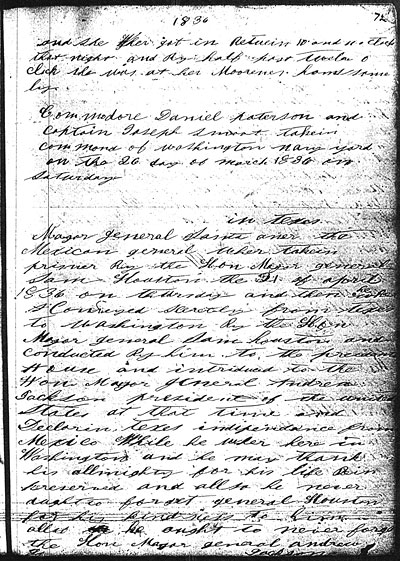 1836
and she ther got in Betwein 10 and 11 o clock
that night and By half past twelve o
clock she was at her Moorenes handsome
ly.
Commodore Daniel paterson and
Captain Joseph smoot takein
command of washington navy yard
on the 26 day of march 1836 on
Saturday
in texes
Mayor general Santa aner the
Mexican general wher takein
prisner By the Hon Major general
Sam Houston the 21 of april
1836 on thursday and then
Conveyed Secretly from texes
to Washington By the Hon
Major general Sam houston and
Conducted By him to the presedent
House and introduced to the
Hon Mayor general Andrew
Jackson president of the united
States at that time and
Declarin texes independance from
Mexico While he wher here in
Washington and he may thank
his allmighty for his life Bein
preserved and allso he never
aught to forget general Houston
for his kindness to him
allso he ought to never forget
the Hon Major general andrew
Jackson